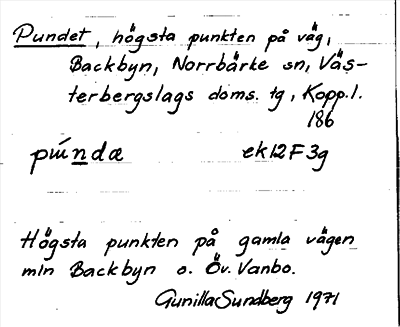 Pundet, högsta punkten på väg,
Backbyn, Norrbärke sn, Väs-
terbergslags doms. tg, Kopp. l.
186
pṹndæ ek12F3g
Högsta punkten på gamla vägen
mln Backbyn o. Öv. Vanbo.
Gunilla Sundberg 1971